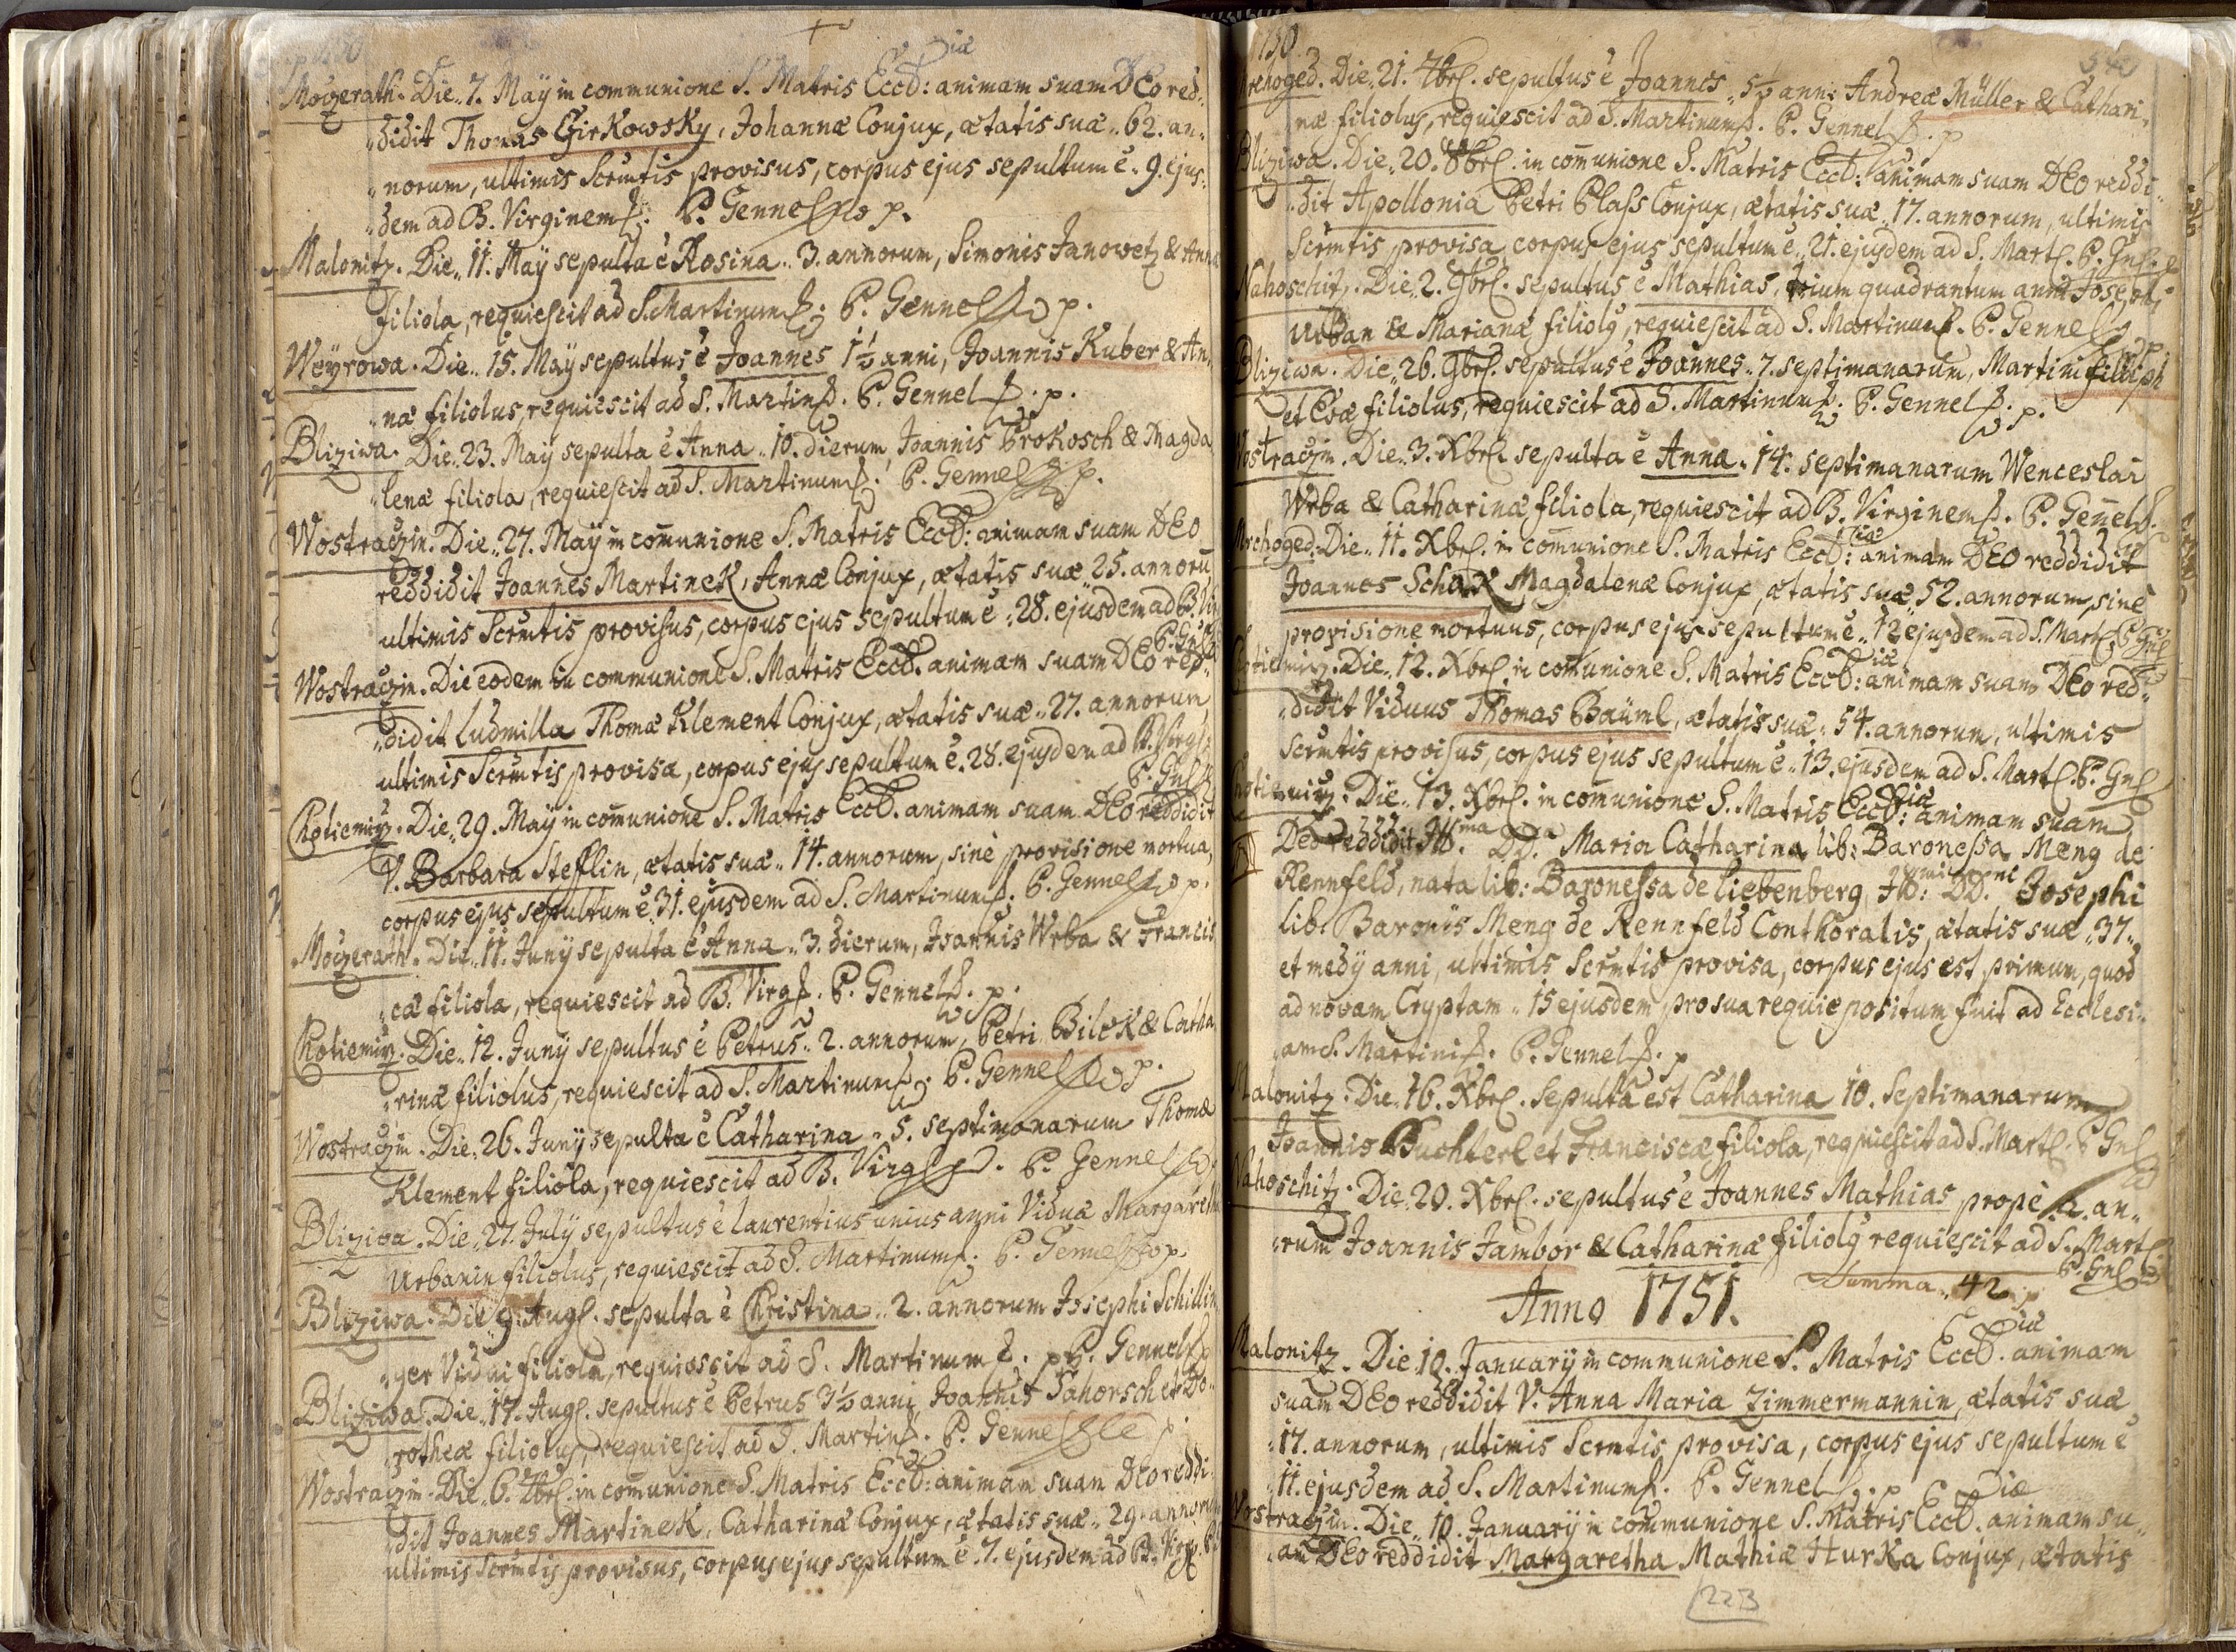 iæ
Moizerath. Die„ 7. Maÿ in communione S. Matris Eccl: animam suam DEo red„
„didit Thomas Girkowsky, Johannæ Conjux, ætatis suæ„ 62. an„
„norum, ultimis Scrmtis provisus, corpus ejus sepultum ẽ„ 9. ejus„
„dem ad B. Virginem. P. Gennel p.
Malonitz. Die„ 11. Maÿ sepulta ẽ Rosina„ 3. annorum, Simonis Janowetz & Annæ
filiola, requiescit ad S. Martinum. P. Gennel p.
Weyrowa. Die„ 15. Maÿ sepultus ẽ Joannes 1½ anni, Joannis Kuber & An„
„næ filiolus, requiescit ad S. Martin. P. Gennel p.
Bliziwa. Die„ 23. Maÿ sepulta ẽ Anna„ 10. dierum, Joannis Prokosch & Magda
„lenæ filiola, requiescit ad S. Martinum. P. Gennel p.
Wostraczin. Die„ 27. Maÿ in com̃unione S. Matris Eccl: animam suam DEo
reddidit Joannes Martinek, Annæ Conjux, ætatis suæ„ 25. annorũ
ultimis Scrmtis provisus, corpus ejus sepultum ẽ„ 28. ejusdem ad B. Vir
P. Gnl
Wostraczin. Die eodem in communione S. Matris Eccl. animam suam DEo red„
„didit Ludmilla Thomæ Klement Conjux, ætatis suæ„ 27. annorum
ultimis Scrmtis provisa, corpus ejus sepultum ẽ. 28. ejusdem ad B. Virg
P. Gnl
Chotiemirz. Die„ 29. Maÿ in com̃unione S. Matris Eccl. animam suam DEo reddidit
V. Barbara Steflin, ætatis suæ„ 14. annorum, sinè provisione mortua,
corpus ejus sepultum ẽ„ 31. ejusdem ad S. Martinum. P. Gennel p.
Moizerath. Die„ 11. Junÿ sepulta ẽ Anna„ 3. dierum, Joannis Wrba & Francis
„cæ filiola, requiescit ad B. Virg. P. Gennel p.
Chotiemirz. Die„ 12. Junÿ sepultus ẽ Petrus„ 2. annorum, Petri Bilek & Catha
„rinæ filiolus, requiescit ad S. Martinum. P. Gennel p.
Wostraczin. Die„ 26. Junÿ sepulta ẽ Catharina„ 5. septimanarum Thomæ
Klement filiola, requiescit ad B. Virg. P. Gennel
Bliziwa. Die„ 27. Julÿ sepultus ẽ Laurentius unius anni Viduæ Margareth
Urbanin filiolus, requiescit ad S. Martinum. P. Gennel p.
Bliziwa. Die„ 9. Aug. sepulta ẽ Christina„ 2. annorum Josephi Schillin
„ger Vidui filiola, requiescit ad S. Martinum. p P. Gennel
Bliziwa. Die„ 17. Aug. sepultus ẽ Petrus 3½ anni, Joannis Tahorsch et Do„
„rotheæ filiolus, requiescit ad S. Martin. P. Gennel p.
Wostraczin. Die„ 6. 7brl. in com̃unione S. Matris Eccl: animam suam DEo reddi
„dit Joannes Martinek, Catharinæ Conjux, ætatis suæ„ 29. annorum
ultimis Scrmtis provisus, corpus ejus sepultum ẽ„ 7. ejusdem ad B. Virg.
Mrchoged. Die„ 21. 7brl. sepultus ẽ Joannes„ 5½ ann: Andreæ Müller & Cathari„
„næ filiolus, requiescit ad S. Martinum. P. Gennel p
Bliziwa. Die„ 20. 8brl. in com̃unione S. Matris Eccl: animam suam DEo reddi„
„dit Apollonia Petri Plass Conjux, ætatis suæ„ 17. annorum, ultimis
Scrmtis provisa, corpus ejus sepultum ẽ„ 21. ejusdem ad S. Mart. P. Gnl.
Nahoschitz. Die„ 2. 9brl. sepultus ẽ Mathias, trium quadrantum anni Josephi
Urban & Marianæ filiolg, requiescit ad S. Martinum. P. Gennel p
Bliziwa. Die„ 26. 9brl. sepultus ẽ Joannes„ 7. septimanarum, Martini Filliph
et Evæ filiolus, requiescit ad S. Martinum. P. Gennel p.
Wostraczin. Die„ 3. Xbrl. sepulta ẽ Anna„ 14. septimanarum Wenceslai
Wrba & Catharinæ filiola, requiescit ad B. Virginem. P. Geñel
Mrchoged. Die„ 11. Xbrl. in com̃unione S. Matris Eccl:iæ animam DEo reddidit
Joannes Schax Magdalenæ Conjux, ætatis suæ„ 52. annorum, sinè
provisione mortuus, corpus ejus sepultum ẽ„ 12 ejusdem ad S. Mart. P. Gnl
Chotiemirz. Die„ 12. Xbrl. in com̃unione S. Matris Eccl:iæ animam suam DEo red„
„didit Viduus Thomas Bäuml, ætatis suæ„ 54. annorum, ultimis
Scrmtis provisus, corpus ejus sepultum ẽ„ 13. ejusdem ad S. Mart. P. Gnl
Chotiemirz. Die„ 13. Xbrl. in com̃unione S. Matris Eccl:iæ animam suam
Deo reddidit Ill.ma DD.a Maria Catharina lib: Baronessa Meng de
Rennfeld, nata lib: Baronessa de Liebenberg, Ill: DD. Josephi
lib. Baronis Meng de Rennfeld Conthoralis, ætatis suæ„ 37„
et medÿ anni, ultimis Scrmtis provisa, corpus ejus est primum, quod
ad novam Cryptam„ 15 ejusdem pro sua requie positum fuit ad Ecclesi„
„am S. Martini. P. Gennel. p
Malonitz. Die„ 16. Xbrl. sepulta est Catharina 10. Septimanarum
Joannis Buchterl et Franciscæ filiola, requiescit ad S. Mart. P Gnl
Nahoschitz. Die„ 20. Xbrl. sepultus ẽ Joannes Mathias propè 2. an„
„rum Joannis Jambor & Catharinæ filiolg requiescit ad S. Mart
P. Gnl
Summa„ 42
Anno 1751.
Malonitz. Die„ 10. Januarÿ in communione S. Matris Eccl.iæ animam
suam DEo reddidit V. Anna Maria Zimmermannin, ætatis suæ
„17. annorum, ultimis Scrmtis provisa, corpus ejus sepultum ẽ
„11. ejusdem ad S. Martinum. P. Gennel. p
Wostraczin. Die„ 10. Januarÿ in communione S. Matris Eccl.iæ animam su„
„am DEo reddidit Margaretha Mathiæ Hurka Conjux, ætatis
223